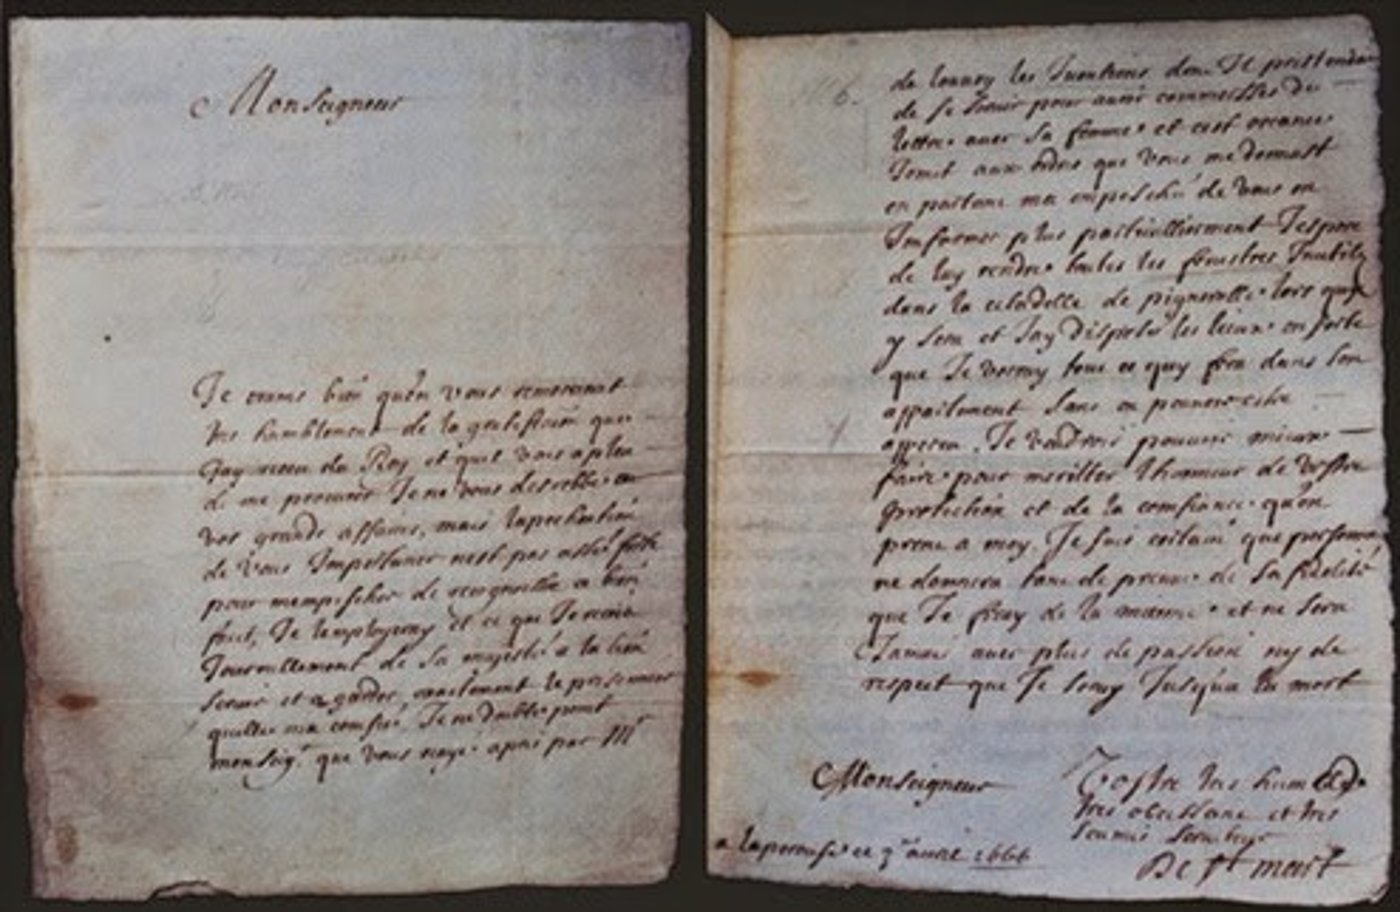 Monseigneur
Je crains bien qu'en vous remerciant
tres humblement de la gratification que
Jay receu du Roy, et qu'il vous a pleu
de me procurer Je ne vous des robbe
vos grands affaires, mais
de vous Importuner nest pas assé forte
pour mempescher de
fait, Je lemployeray et ce que Je recois
Journellement de sa majesté a la bien
servir et a garder, exactement le prisonnier
quelle ma confié. Je ne doubte point
monseigr. que vous nayé apris par Mr
de les Inventions dont Il pretendoit
de se servir pour avoir commerce de
lettre avec sa femme et cest
Joint aux ordre que vous me donnast
en partant ma empesché de vous en
Informer plus particullierement Jespere
de luy rendre toutes les fenestres Inutile
dans la citadelle de pignerolle lors quil
y sera et Jay disposé les lieux en sorte
que Je verray tout ce quy fera dans son
appartement sans en pouvoir estre
apperceu. Je voudrois pouvoir mieux
faire pour meritter lhonneur de vostre
protection et de la confiance qu'on
prent a moy. Je suis certain que personne
ne donnera tant de preuve de sa fidelité
que Je feray de la mienne et ne sera
Jamais avec plus de passion ny de
respect que Je seray Jusqu'a la mort
Monseigneur
Vostre tres humble
tres obeissant et tres
soumis serviteur
a laperouse ce avril 1666
De St mars